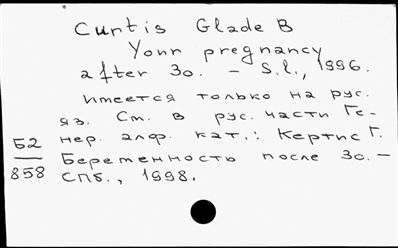 Curtis Glade B
Your pregnancy
after 30. - S.l., 1996.
Имеется только на рус.
яз. См. в рус. части Ге-
нер. алф. кат.: Кертис Г.
Беременность после 30. -
СПб., 1998.
Б2
858